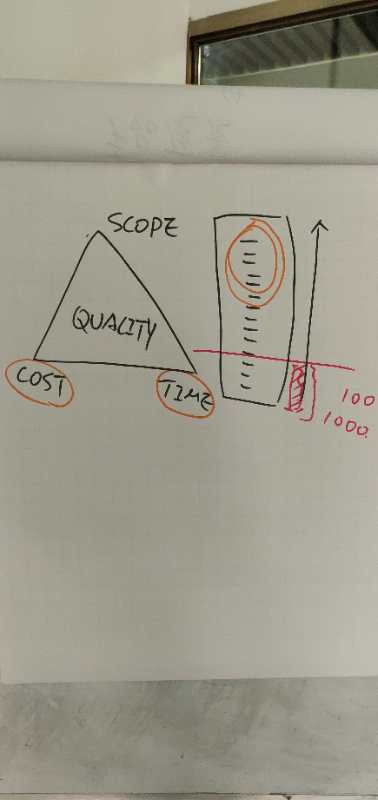 SCOPE
QUALITY
COST
TIME
100
1000